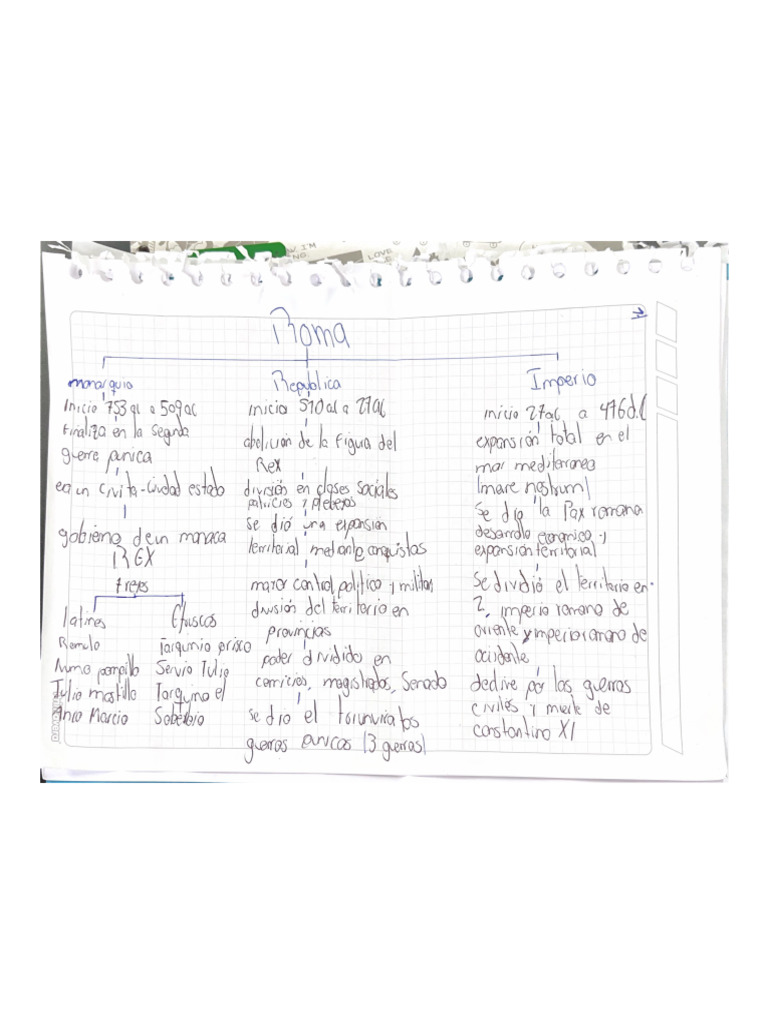 Roma
monarquia
Inicio 753 ac a 509 ac
Finaliza en la segunda
guerra punica
era un civita-ciudad estado
gobierno de un monaca
REX
+ reyes
latines
Romulo
Numa pompilio
Tulio mostilio
Anco Marcio
Etruscos
Tarquinio prisco
Servio Tulio
Tarquino el
Soberbio
Republica
inicia 510 ac a 27 ac
abolición de la figura del
Rex
división en clases sociales
patricios y plebeyos
se dió una expansión
territorial mediante conquistas
mayor control politico y militar
división del territorio en
provincias
poder dividido en
comicios, magistrados, Senado
se dio el
guerras punicas (3 guerras)
Imperio
inicio 27 ac a 476 d.C
expansión total en el
mar mediterraneo
(mare nostrum)
Se dio la Pax romana
desarrollo economico y
expansión territorial
Se dividió el territorio en
2, imperio romano de
oriente y imperio romano de
occidente
declive por las guerras
civiles y muerte de
constantino XI